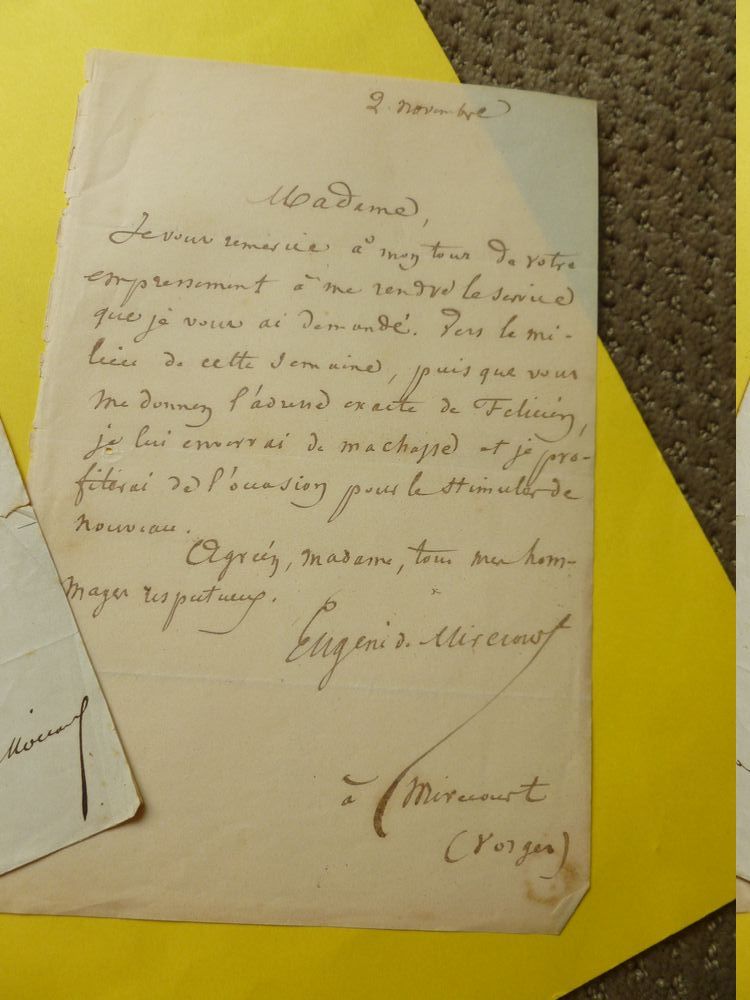 2 novembre
Madame,
Je vous remercie à mon tour de votre
empressement à me rendre le service
que je vous ai demandé. Vers le mi-
lieu de cette semaine, puis que vous
me donnez l'adresse exacte de Felicien,
je lui enverrai de ma chasse et je pro-
fiterai de l'occasion pour le stimuler de
nouveau.
Agréez, madame, tous mes hom-
mages respectueux.
Eugène de Mirecourt
à Mirecourt
(Vosges)